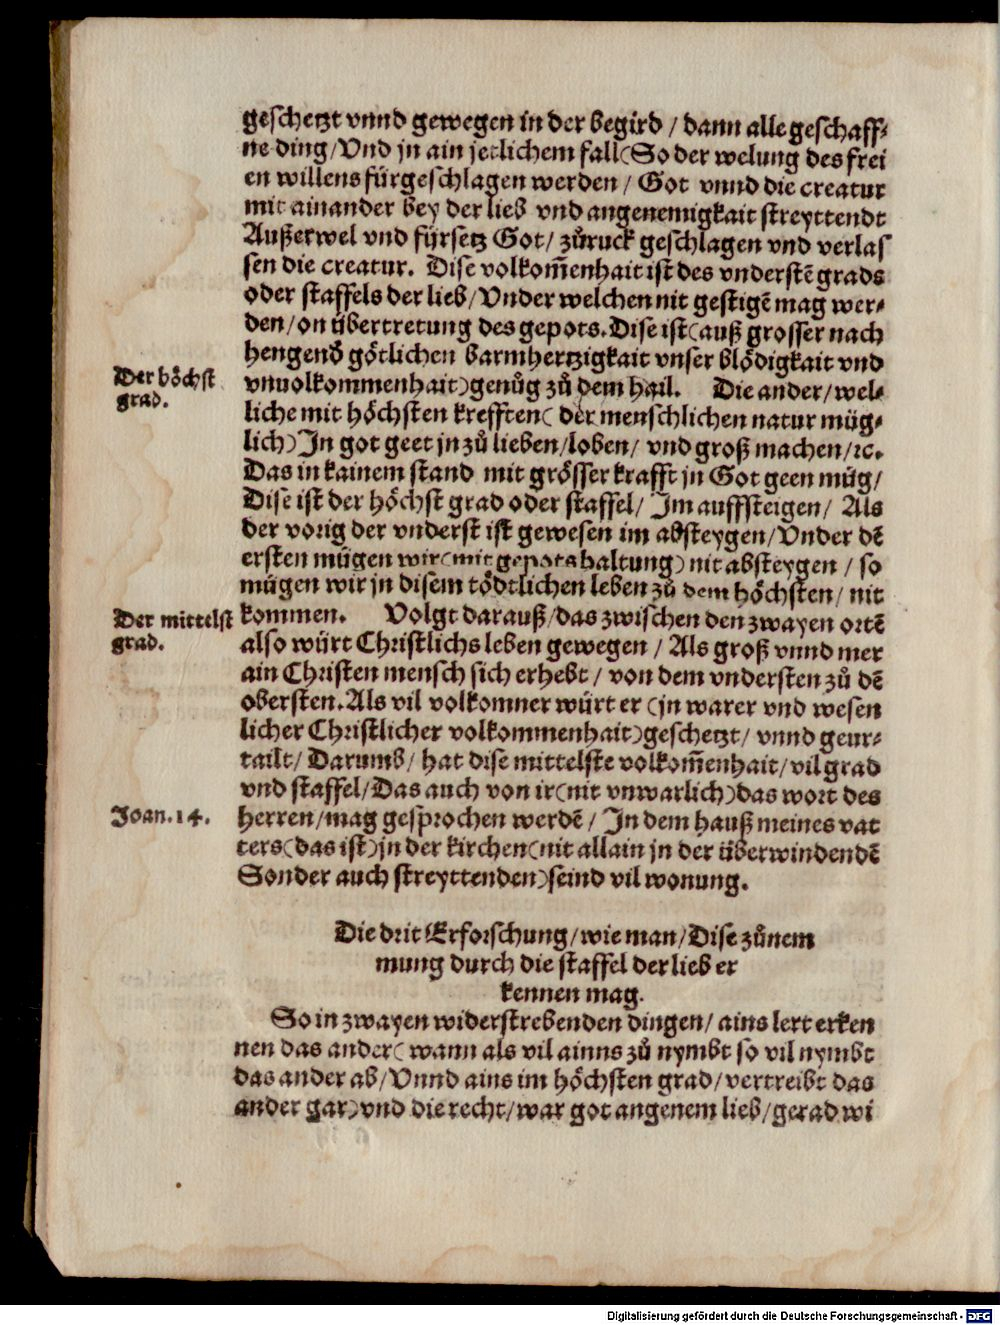 geschetzt vnnd gewegen in der begird / dann alle geschaff⸗
ne ding/Vnd jn ain jetlichem fall(So der welung des frei
en willens fürgeschlagen werden / Got vnnd die creatur
mit ainander bey der lieb vnd angenemigkait streyttendt
Außerwel vnd fürsetz Got/ zůruck geschlagen vnd verlas
sen die creatur. Dise volkom̃enhait ist des vnderstẽ grads
oder staffels der lieb/Vnder welchen nit gestigẽ mag wer⸗
den/on übertretung des gepots.Dise ist(auß grosser nach
hengend götlichen barmhertzigkait vnser blödigkait vnd
Der höchst
grad.
vnuolkommenhait)genůg zů dem hail. Die ander/wel⸗
liche mit höchsten krefften( der menschlichen natur müg⸗
lich)In got geet jnzů lieben/loben/ vnd groß machen/ꝛc.
Das in kainem stand mit grösser krafft jn Got geen müg/
Dise ist der höchst grad oder staffel/ Im auffsteigen/ Als
der vorig der vnderst ist gewesen im absteygen/Vnder dẽ
ersten mügen wir(mit gepots haltung) nit absteygen / so
mügen wir jn disem tödtlichen leben zů dem höchsten/ nit
Der mittelst
grad.
kommen. Volgt darauß/das zwischen den zwayen ortẽ
also würt Christlichs leben gewegen / Als groß vnnd mer
ain Christen mensch sich erhebt / von dem vndersten zů dẽ
obersten.Als vil volkomner würt er (jn warer vnd wesen
licher Christlicher volkommenhait)geschetzt/ vnnd geur⸗
tailt/ Darumb/ hat dise mittelste volkom̃enhait/vil grad
vnd staffel/Das auch von ir(nit vnwarlich)das wort des
Joan.14.
herren/mag gesprochen werdẽ / In dem hauß meines vat
ters(das ist)jn der kirchen(nit allain jn der überwindendẽ
Sonder auch streyttenden)seind vil wonung.
Die drit Erforschung/wie man/Dise zůnem
mung durch die staffel der lieb er
kennen mag.
So in zwayen widerstrebenden dingen/ ains lert erken
nen das ander( wann als vil ainns zů nymbt so vil nymbt
das ander ab/Vnnd ains im höchsten grad/vertreibt das
ander gar)vnd die recht/war got angenem lieb/gerad wi
Digitalisierung gefördert durch die Deutsche Forschungsgemeinschaft - DFG